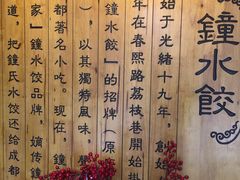 鐘水餃
始于光緒十九年，創始
年在春熙路荔枝巷開始掛
鐘水餃」的招牌（原
），以其獨特風味，
都著名小吃。現在，鐘
家」鐘水餃品牌，嫡傳鐘
道，把鐘氏水饺还给成都